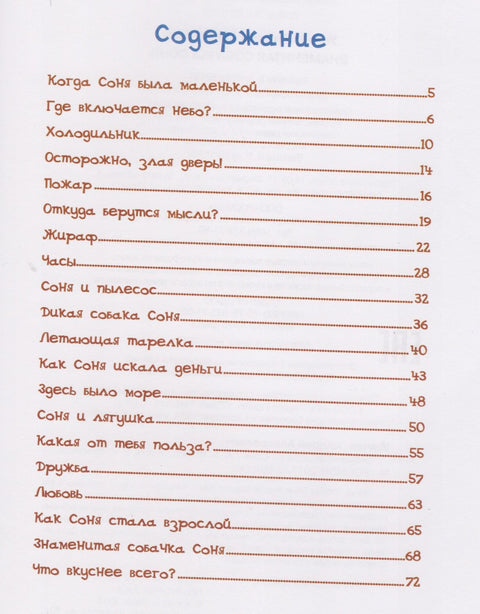 Содержание
Когда Соня была маленькой 5
Где включается небо? 6
Холодильник 10
Осторожно, злая дверь! 14
Пожар 16
Откуда берутся мысли? 19
Жираф 22
Часы 28
Соня и пылесос 32
Дикая собака Соня 36
Летающая тарелка 40
Как Соня искала деньги 43
Здесь было море 48
Соня и лягушка 50
Какая от тебя польза? 55
Дружба 57
Любовь 63
Как Соня стала взрослой 65
Знаменитая собачка Соня 68
Что вкуснее всего? 72